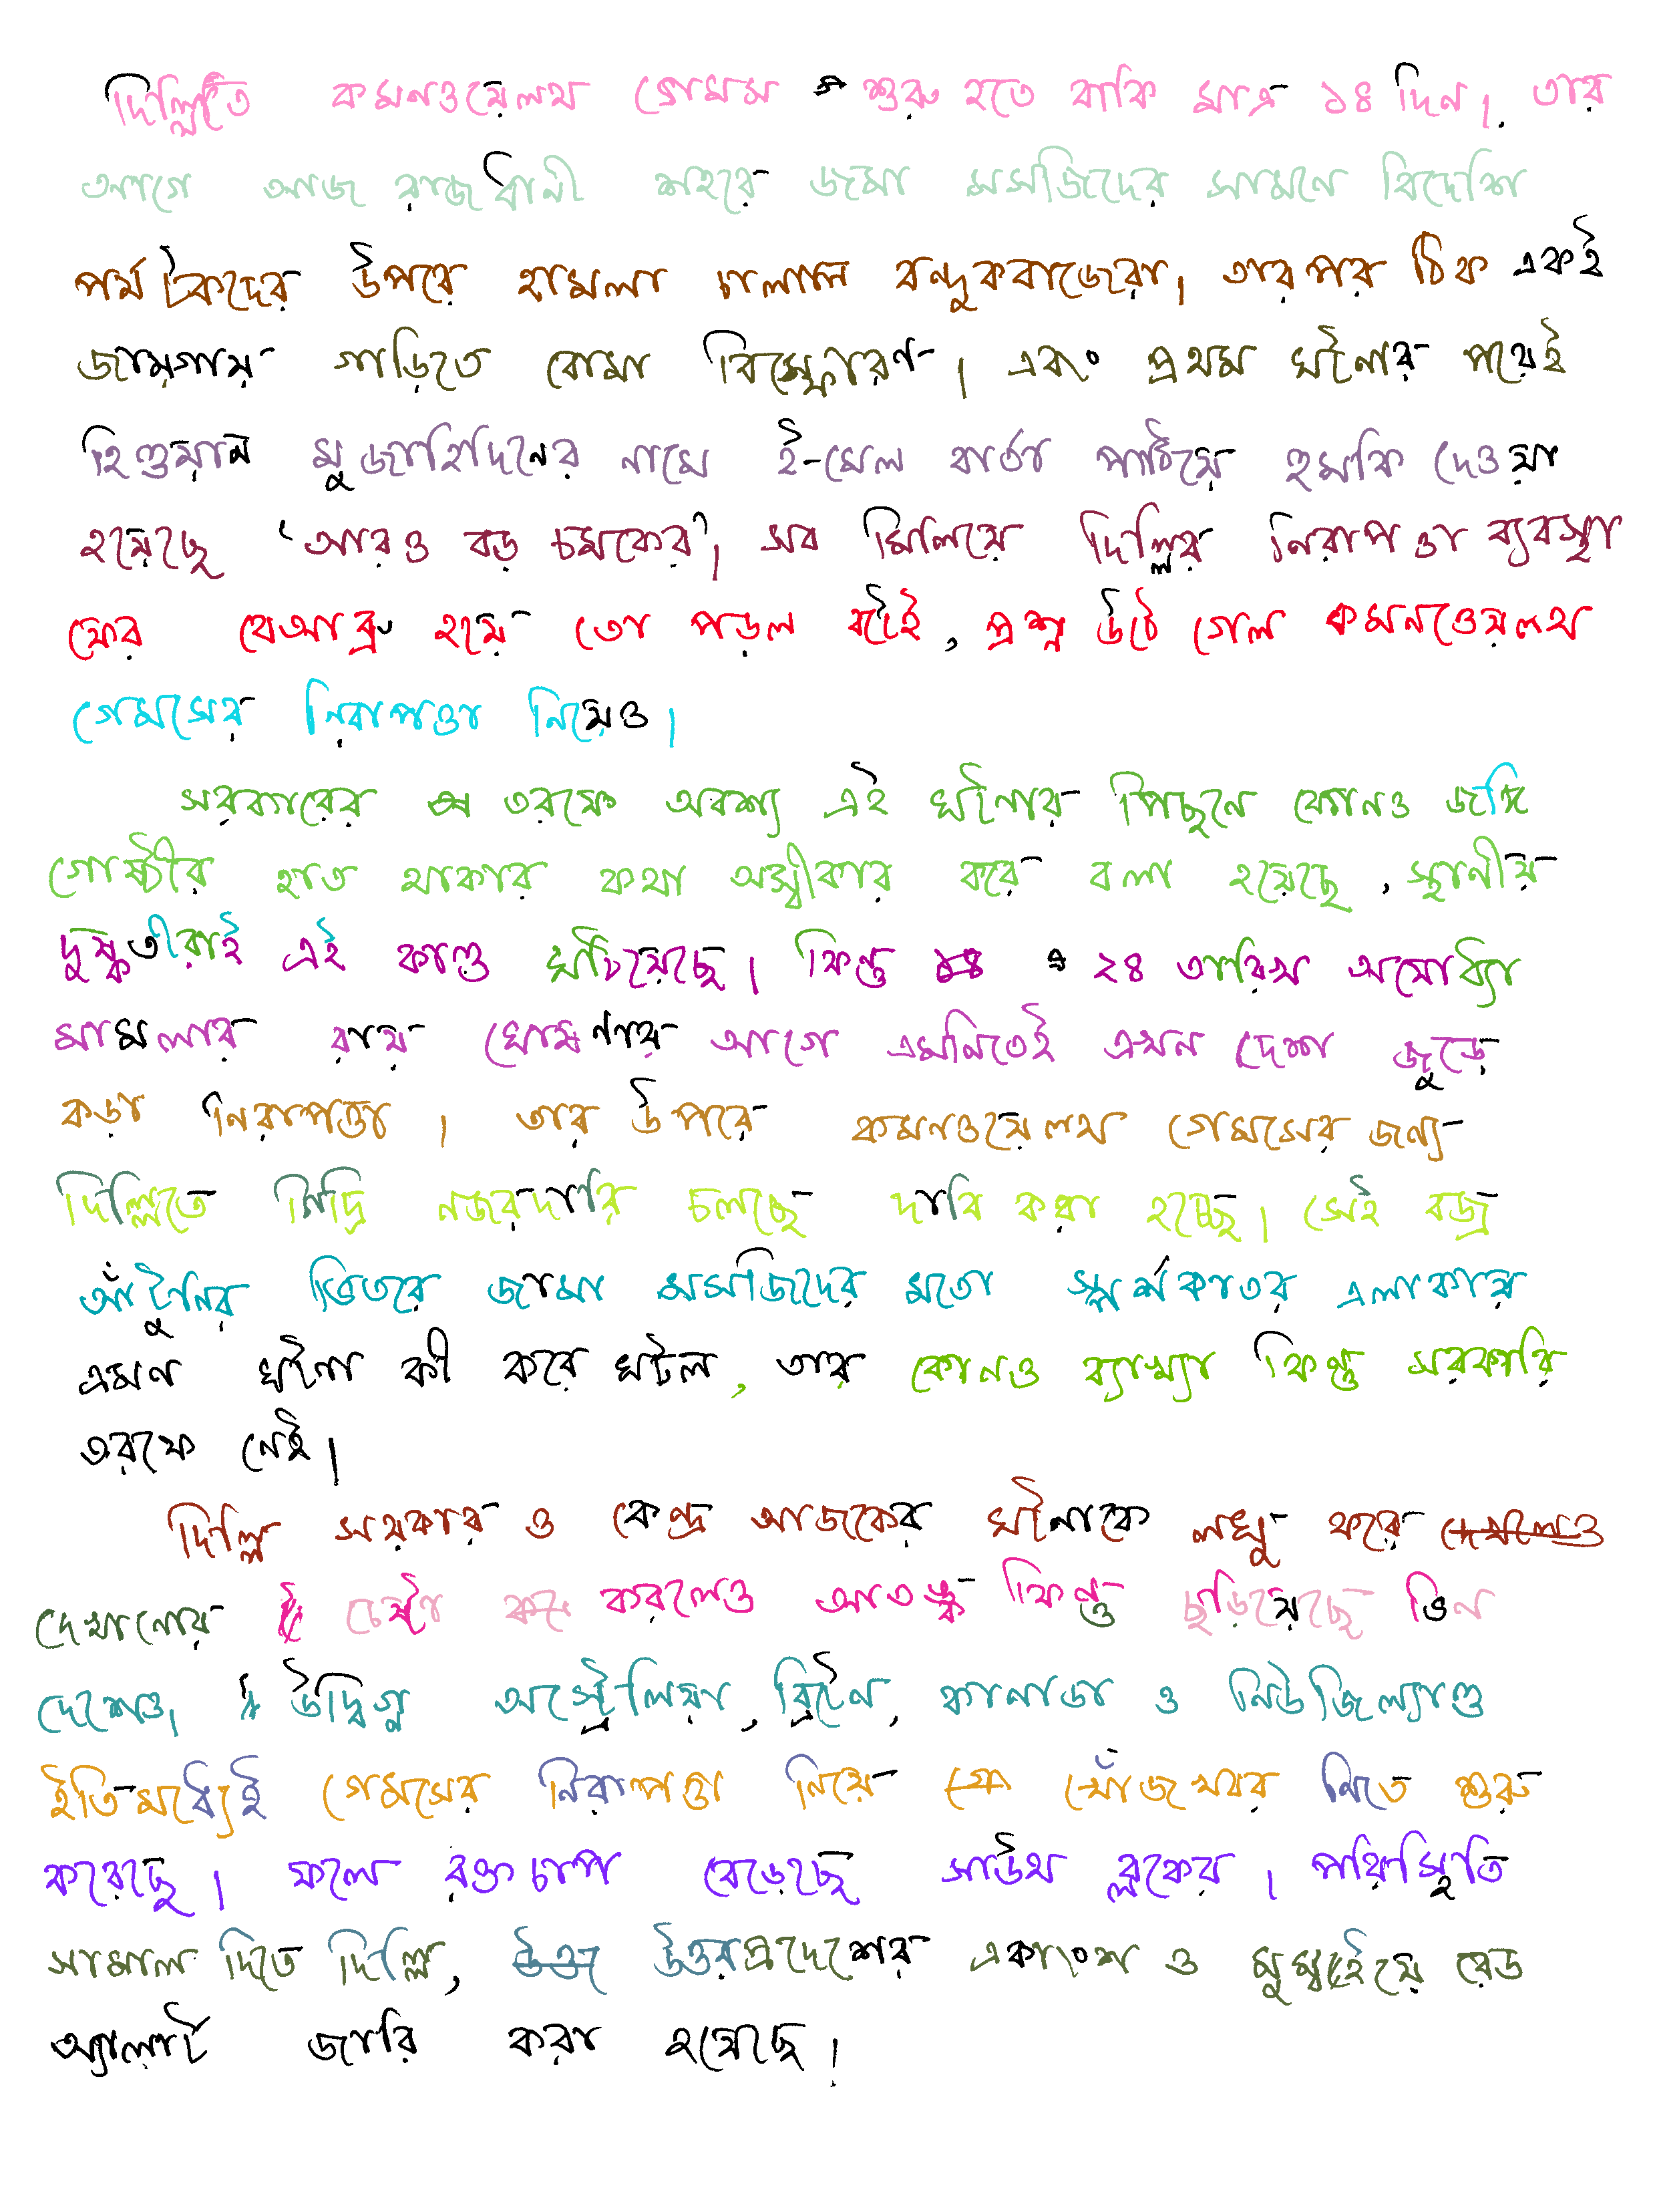 দিল্লিতে কমনওয়েলথ গেমস শুরু হতে বাকি মাত্র ১৪ দিন। তার
আগে আজ রাজধানী শহরে জমা মসজিদের সামনে বিদেশি
পর্যটকদের উপরে হামলা চালাল বন্দুকবাজেরা। তারপর ঠিক একই
জায়গায় গাড়িতে বোমা বিস্ফোরণ। এবং প্রথম ঘটনার পরেই
ইণ্ডিয়ান মুজাহিদিনের নামে ই-মেল বার্তা পাঠিয়ে হুমকি দেওয়া
হয়েছে 'আরও বড় চমকের'। সব মিলিয়ে দিল্লির নিরাপত্তা ব্যবস্থা
ফের বেআব্রু হয়ে তো পড়ল বটেই, প্রশ্ন উঠে গেল কমনওয়েলথ
গেমসের নিরাপত্তা নিয়েও।
সরকারের তরফে অবশ্য এই ঘটনার পিছনে কোনও জঙ্গি
গোষ্ঠীর হাত থাকার কথা অস্বীকার করে বলা হয়েছে, স্থানীয়
দুষ্কৃতীরাই এই কাণ্ড ঘটিয়েছে। কিন্তু ২৪ তারিখ অযোধ্যা
মামলার রায় ঘোষণার আগে এমনিতেই এখন দেশ জুড়ে
কড়া নিরাপত্তা। তার উপরে কমনওয়েলথ গেমসের জন্য
দিল্লিতে নিশ্ছিদ্র নজরদারি চলছে দাবি করা হচ্ছে। সেই বজ্র
আঁটুনির ভিতরে জামা মসজিদের মতো স্পর্শকাতর এলাকায়
এমন ঘটনা কী করে ঘটল, তার কোনও ব্যাখ্যা কিন্তু সরকারি
তরফে নেই।
দিল্লি সরকার ও কেন্দ্র আজকের ঘটনাকে লঘু করে
দেখানোর চেষ্টা করলেও আতঙ্ক কিন্তু ছড়িয়েছে ভিন
দেশেও। উদ্বিগ্ন অস্ট্রেলিয়া, ব্রিটেন, কানাডা ও নিউজিল্যাণ্ড
ইতিমধ্যেই গেমসের নিরাপত্তা নিয়ে খোঁজখবর নিতে শুরু
করেছে। ফলে রক্তচাপ বেড়েছে সাউথ ব্লকের। পরিস্থিতি
সামাল দিতে দিল্লি, উত্তরপ্রদেশের একাংশ ও মুম্বাইয়ে রেড
অ্যালার্ট জারি করা হয়েছে।